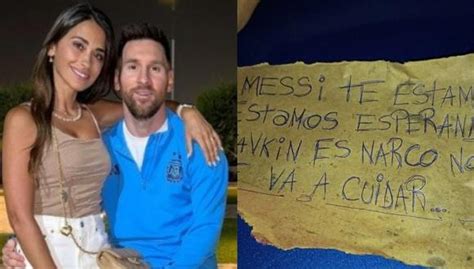 MESSI TE ESTAM
ESTAMOS ESPERAN
AVKIN ES NARCO NO
VA A CUIDAR...